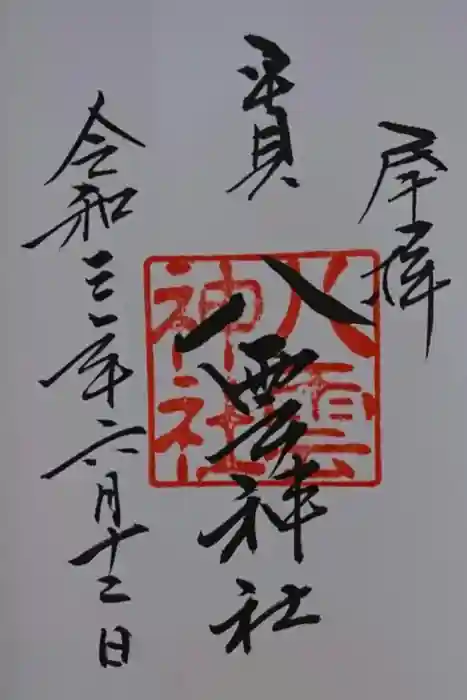 奉拝
八雲神社
八雲
神社
令和三年六月十二日